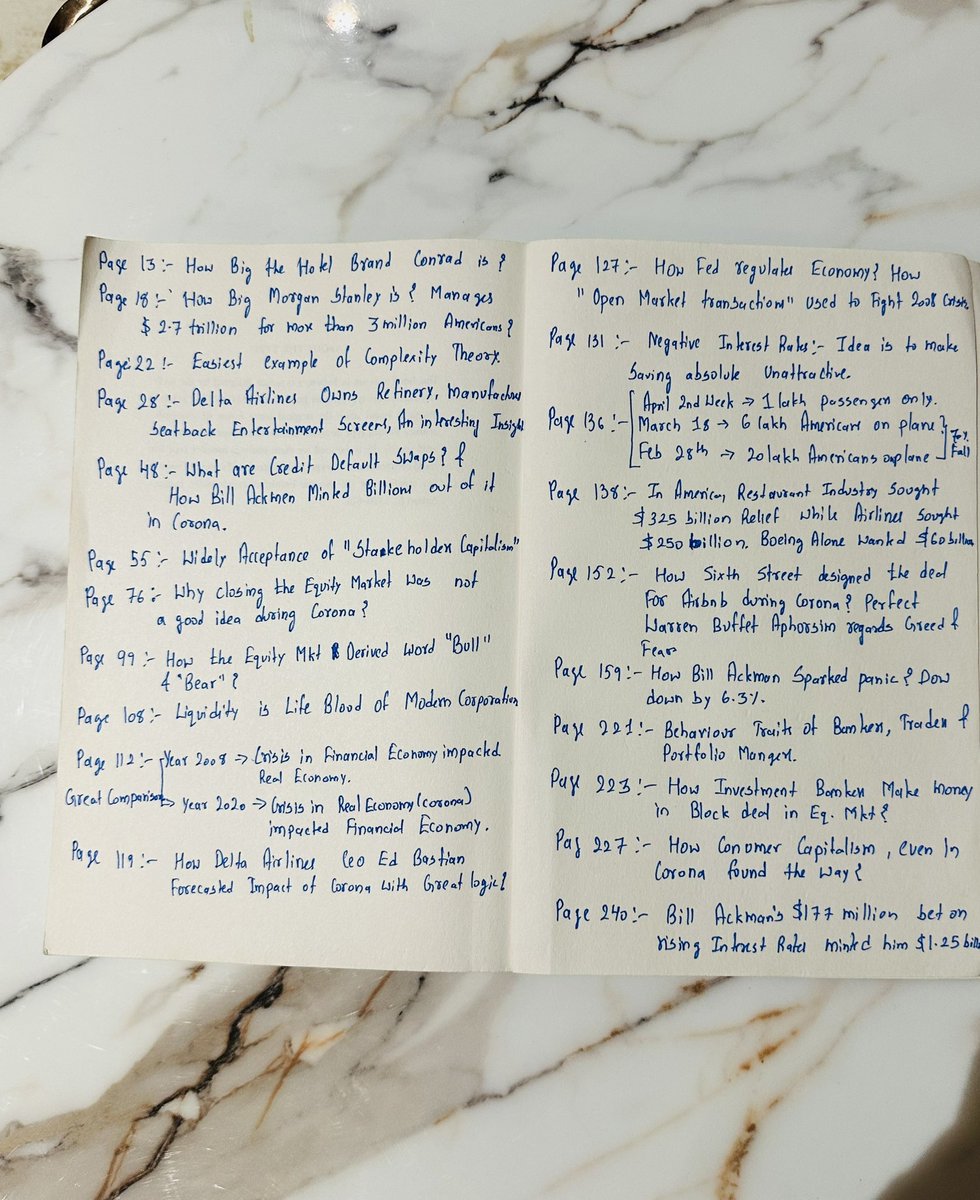 Page 13:- How Big the Hotel Brand Conrad is?
Page 18:- How Big Morgan Stanley is? Manages
$ 2.7 trillion for more than 3 million Americans?
Page 22:- Easiest example of Complexity Theory.
Page 28:- Delta Airlines Owns Refinery, manufactures
Seatback Entertainment Screens, An interesting Insight
Page 48:- What are Credit Default Swaps? &
How Bill Ackmen Minked Billions out of it
in Corona.
Page 55:- Widely Acceptance of "Stakeholder Capitalism"
Page 76:- Why closing the Equity Market was not
a good idea during Corona?
Page 99:- How the Equity Mkt Derived word "Bull"
& "Bear"?
Page 108:- Liquidity is Life Blood of Modern Corporation
Page 112:- Year 2008 → Crisis in Financial Economy impacted
Real Economy.
Great Comparison → Year 2020 → Crisis in Real Economy (corona)
impacted Financial Economy.
Page 119:- How Delta Airlines Ceo Ed Bastian
Forecasted Impact of Corona with Great logic?
Page 127:- How Fed regulates Economy? How
"Open Market transactions" Used to Fight 2008 Crisis
Page 131:- Negative Interest Rates:- Idea is to make
Saving absolute Unattractive.
April 2nd Week → 1 lakh passenger only.
Page 136:- March 18 → 6 lakh Americans on plane
Feb 28th → 20 lakh Americans onplane Fall
Page 138:- In America, Restaurant Industry Sought
$325 billion Relief while Airlines Sought
$250 billion. Boeing Alone Wanted $60 billion
Page 152:- How Sixth Street designed the deal
For Airbnb during Corona? Perfect
Warren Buffet Aphorsim regards Greed &
Fear
Page 159:- How Bill Ackman Sparked panic? Dow
down by 6.3%.
Page 221:- Behaviour Traits of Banker, Trader &
Portfolio Manger.
Page 223:- How Investment Banker Make money
in Block deal in Eq. Mkt?
Pag 227:- How Conumer Capitalism, even In
Corona found the Way?
Page 240:- Bill Ackman's $177 million bet on
rising Interest Rates minted him $1.25 billi